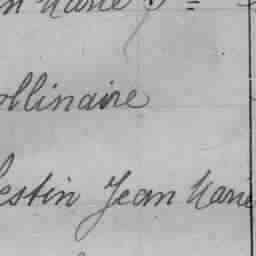 n Marie J=
ollinaire
estin Jean Marie